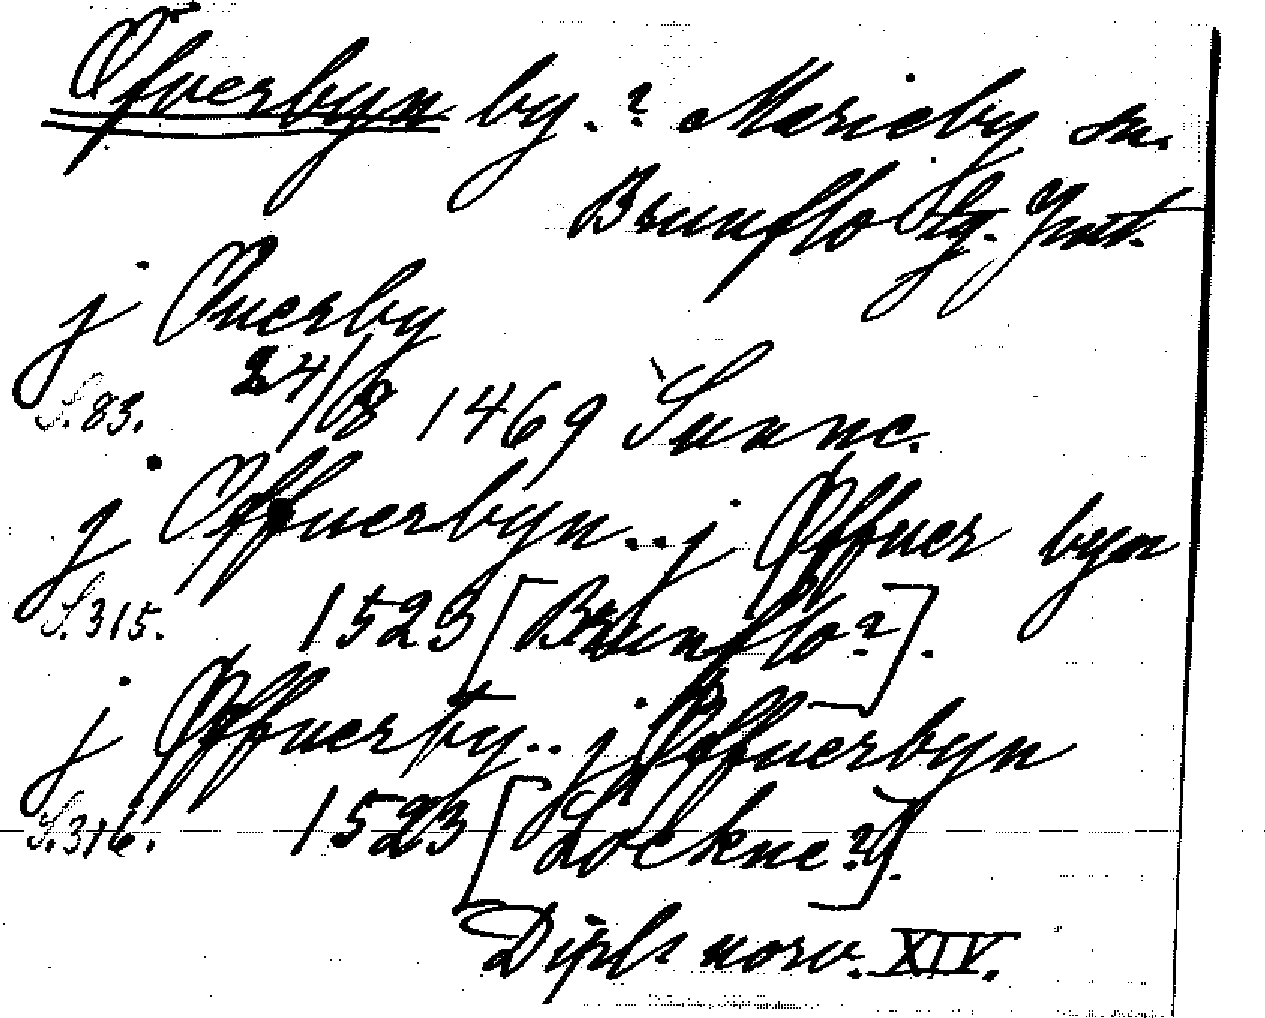 Öfverbyn by. ? Marieby sn.
Brunflo tg. Jmt.
j Ouerby
S. 83. 24/8 1469 Sunne.
j Offuerbyn.. j Øffuer byn
S. 315. 1523 [Brunflo?].
j Øffuerby.. j Øffuerbyn
S. 316. 1523 [Lockne?].
Dipl. norv. XIV.